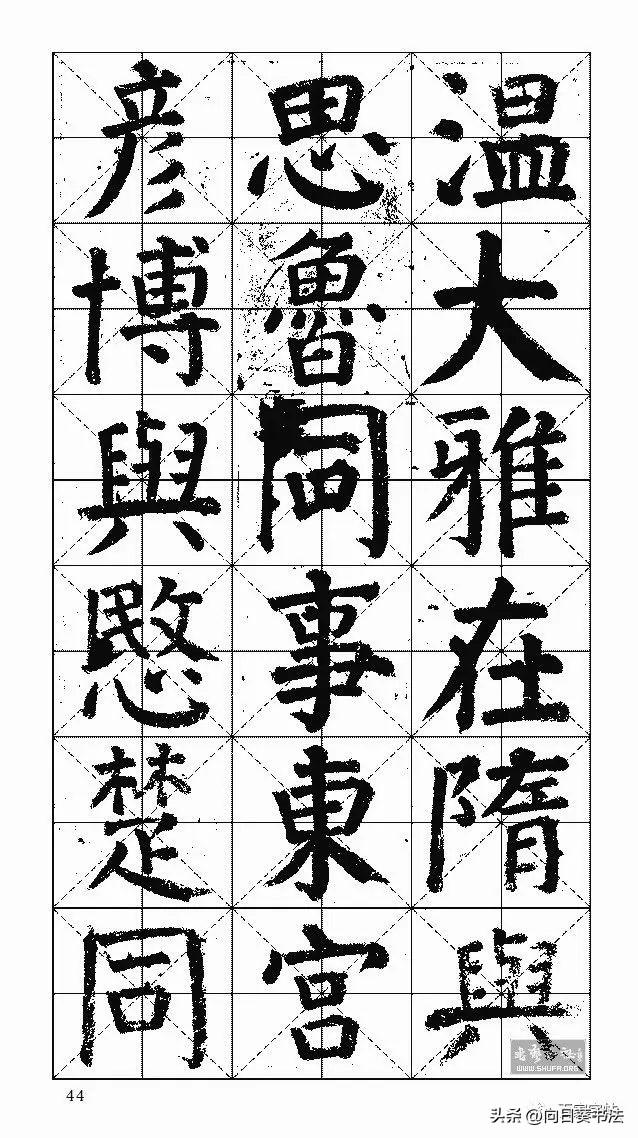 温大雅在隋與
思魯同事東宮
彦博與愍楚同
44
WWW.SHUFA.ORG
头条 @向日葵书法